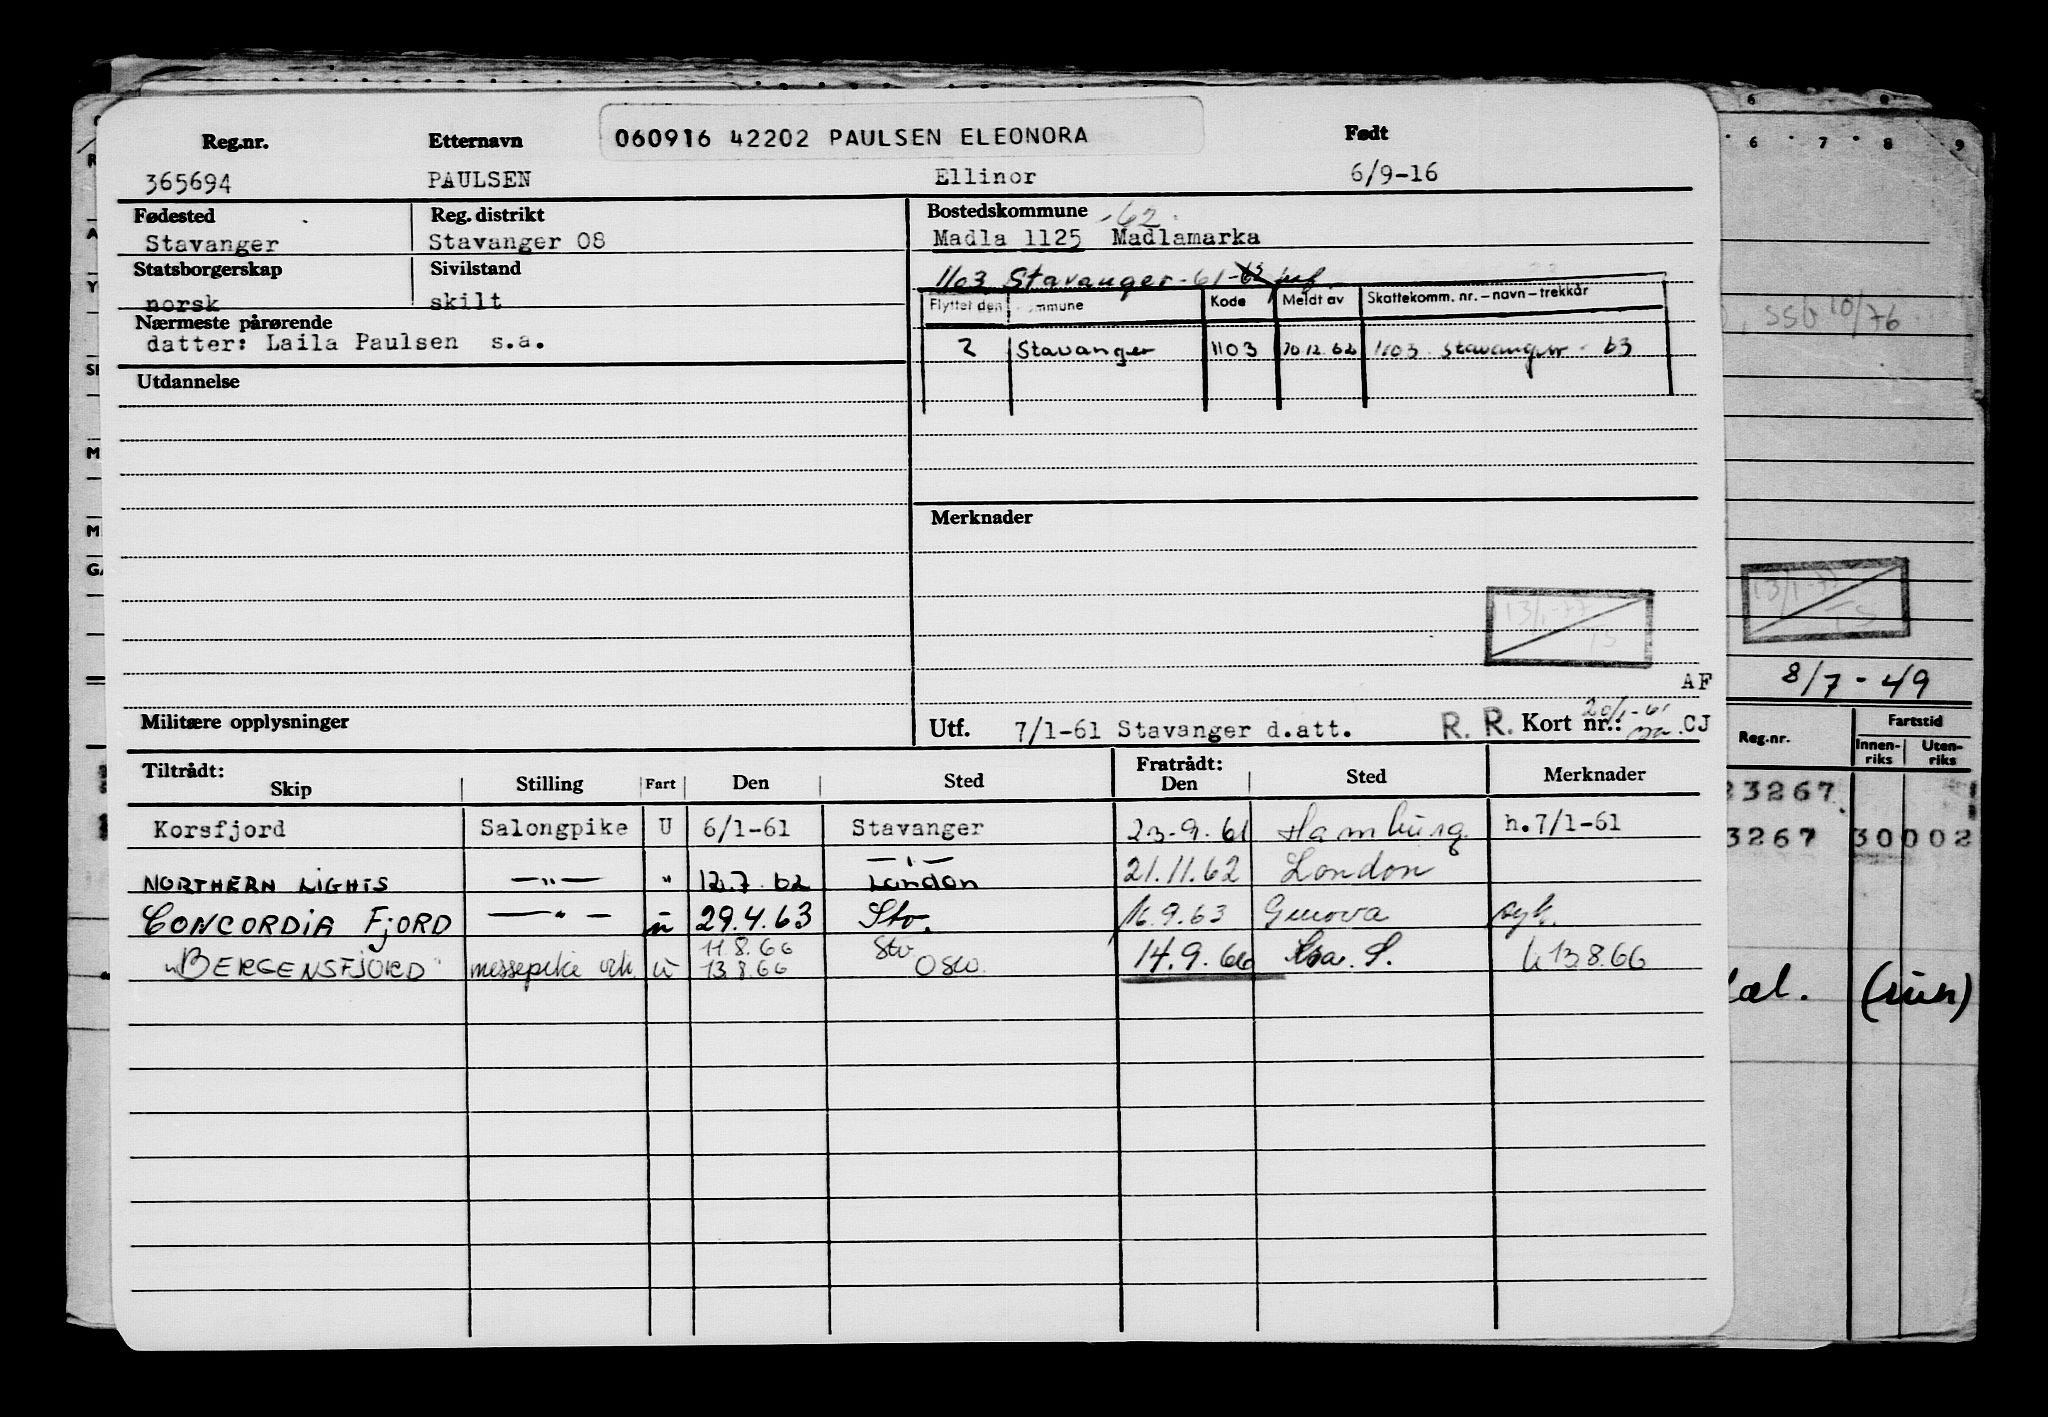 Reg.nr. Etternavn 060916 42202 PAULSEN ELEONORA Født
365694 PAULSEN Ellinor 6/9-16
Fødested Reg. distrikt Bostedskommune -62.
Stavanger Stavanger 08 Madla 1125 Madlamarka
Statsborgerskap Sivilstand 1103 Stavanger-61-
norsk skilt
Flyttet den Kode Meldt av Skattekomm. nr. – navn – trekkår
Nærmeste pårørende
datter: Laila Paulsen s.a. 2 Stavanger 1103 20.12.62 1103 Stavanger - 63
Utdannelse
Merknader
13/1-77
AF
Militære opplysninger Utf. 7/1-61 Stavanger d.att. R. R. Kort nr.: 20/1-61 CJ
Tiltrådt: Fratrådt:
Skip Stilling Fart Den Sted Den Sted Merknader
Korsfjord Salongpike U 6/1-61 Stavanger 23-9.61 Hamburg h.7/1-61
NORTHERN LIGHTS —"— " 12.7.62 London 21.11.62 London
CONCORDIA FJORD —"— u 29.4.63 Stv. 16.9.63 Genova syk.
"BERGENSFJORD" messepike u 11.8.66 Stv. 14.9.66 h 13.8.66
13.8.66 Oslo
6 7 8 9
SSb 10/76
13/1-77
TS
8/7-49
Reg.nr. Fartstid
Innen-riks Uten-riks
23267
3267 30002